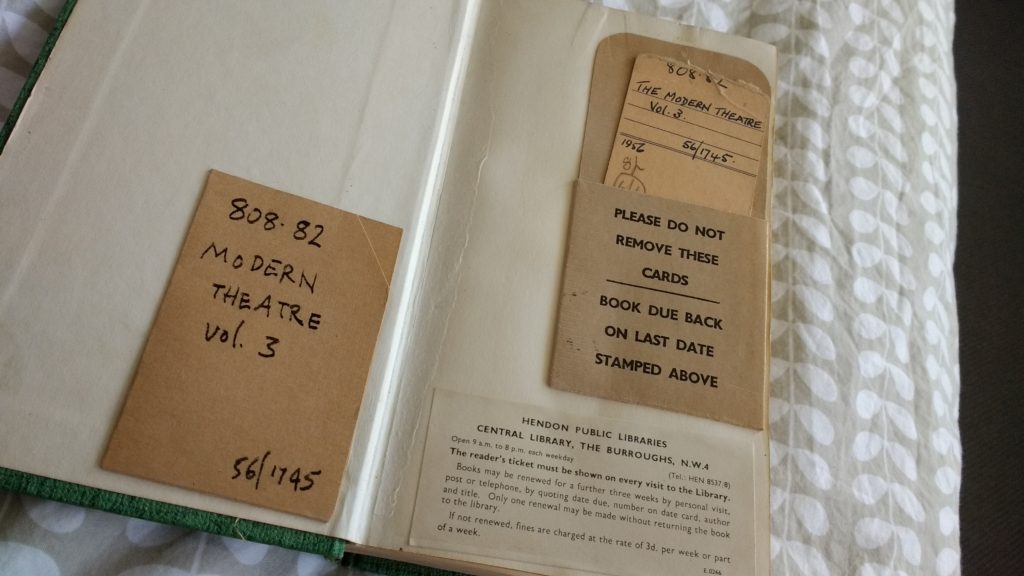 808.82
MODERN
THEATRE
Vol. 3
56/1745
808.82
THE MODERN THEATRE
Vol. 3.
56/1745.
1956
PLEASE DO NOT
REMOVE THESE
CARDS
BOOK DUE BACK
ON LAST DATE
STAMPED ABOVE
HENDON PUBLIC LIBRARIES
CENTRAL LIBRARY, THE BURROUGHS, N.W.4
Open 9 a.m. to 8 p.m. each weekday (Tel.: HEN 8537/8)
The reader's ticket must be shown on every visit to the Library.
Books may be renewed for a further three weeks by personal visit,
post or telephone, by quoting date due, number on date card, author
and title. Only one renewal may be made without returning the book
to the library.
If not renewed, fines are charged at the rate of 3d. per week or part
of a week.
E.0266